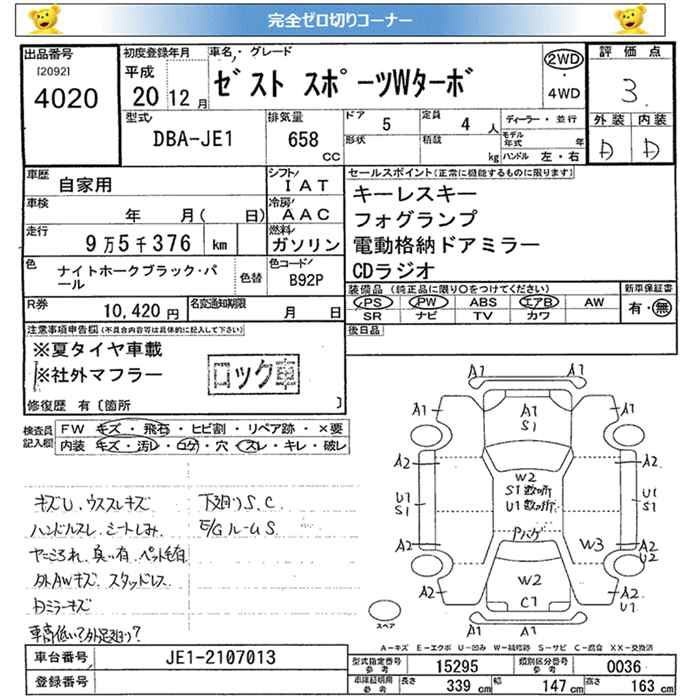 完全ゼロ切りコーナー
出品番号
[2092]
4020
初度登録年月
平成
20 12 月
車名・グレード
ゼスト スポーツWターボ
2WD
・
4WD
評価点
3
型式
DBA-JE1
排気量
658
CC
ドア 5
形状
定員 4 人
積載 kg
ディーラー・並行
モデル年式 年
ハンドル 左・右
外装 内装
D D
車歴
自家用
シフト
IAT
車検
年 月( 日)
冷房
AAC
走行
9万5千376 km
燃料
ガソリン
色
ナイトホークブラック・パール
色替
色コード
B92P
R券
10,420 円
名変通知期限
月 日
セールスポイント(正常に機能するものに限ります)
キーレスキー
フォグランプ
電動格納ドアミラー
CDラジオ
装備品 (純正品に限り○をつけてください)
PS PW ABS エアB AW
SR ナビ TV カワ
新車保証書
有・無
後日品
注意事項申告欄(不具合内容等は具体的に記入して下さい)
※夏タイヤ車載
※社外マフラー
ロック車
修復歴 有〔箇所 〕
検査員
記入欄
FW キズ・飛石・ヒビ割・リペア跡・×要
内装 キズ・汚レ・コゲ・穴・スレ・キレ・破レ
キズU、ウススレキズ
ハンドルスレ、シートしみ
ヤニよごれ、臭い有、ペット毛有
外AWキズ スタッドレス
Dミラーキズ
車高低い?外足廻り?
下廻りS、C
E/GルームS
A1 A1
A1 S1 A1
A2 A2
W2
S1数ヶ所
U1数ヶ所
U1 S1 U1 S1
Pハゲ
A2 W3 A2 U2
W2
C1
A2 A2 U1
A1 A1
スペア
A-キズ E-エクボ U-凹み W-補修跡 S-サビ C-腐食 XX-交換済
車台番号 JE1-2107013
登録番号
型式指定番号 参考 15295
類別区分番号 参考 0036
車庫証明用 参考 長さ 339 cm 幅 147 cm 高さ 163 cm